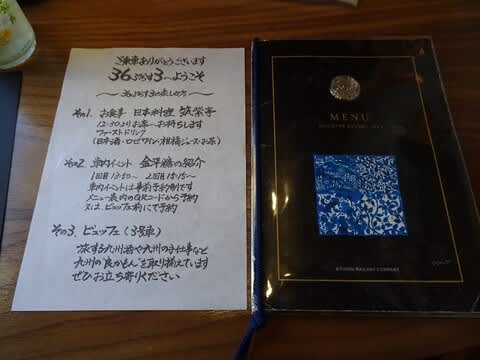 ご乗車ありがとうございます
36ぷらす3へようこそ
〜36ぷらす3の楽しみ方〜
その1. お食事 日本料理 筑紫亭
12:30よりお席へお持ちします
ファーストドリンク
(日本酒・ロゼワイン・柑橘ジュース・お茶)
その2 車内イベント 金平糖の紹介
1回目 13:50〜 2回目 15:15〜
車内イベントは事前予約制です
メニュー表内のQRコードから予約
又は ビュッフェ前にて予約
その3 ビュッフェ (3号車)
旅する九州酒や九州の手仕事など
九州の"良かもん"を取り揃えています
ぜひお立ち寄りください
MENU
KYUSHU RAILWAY COMPANY